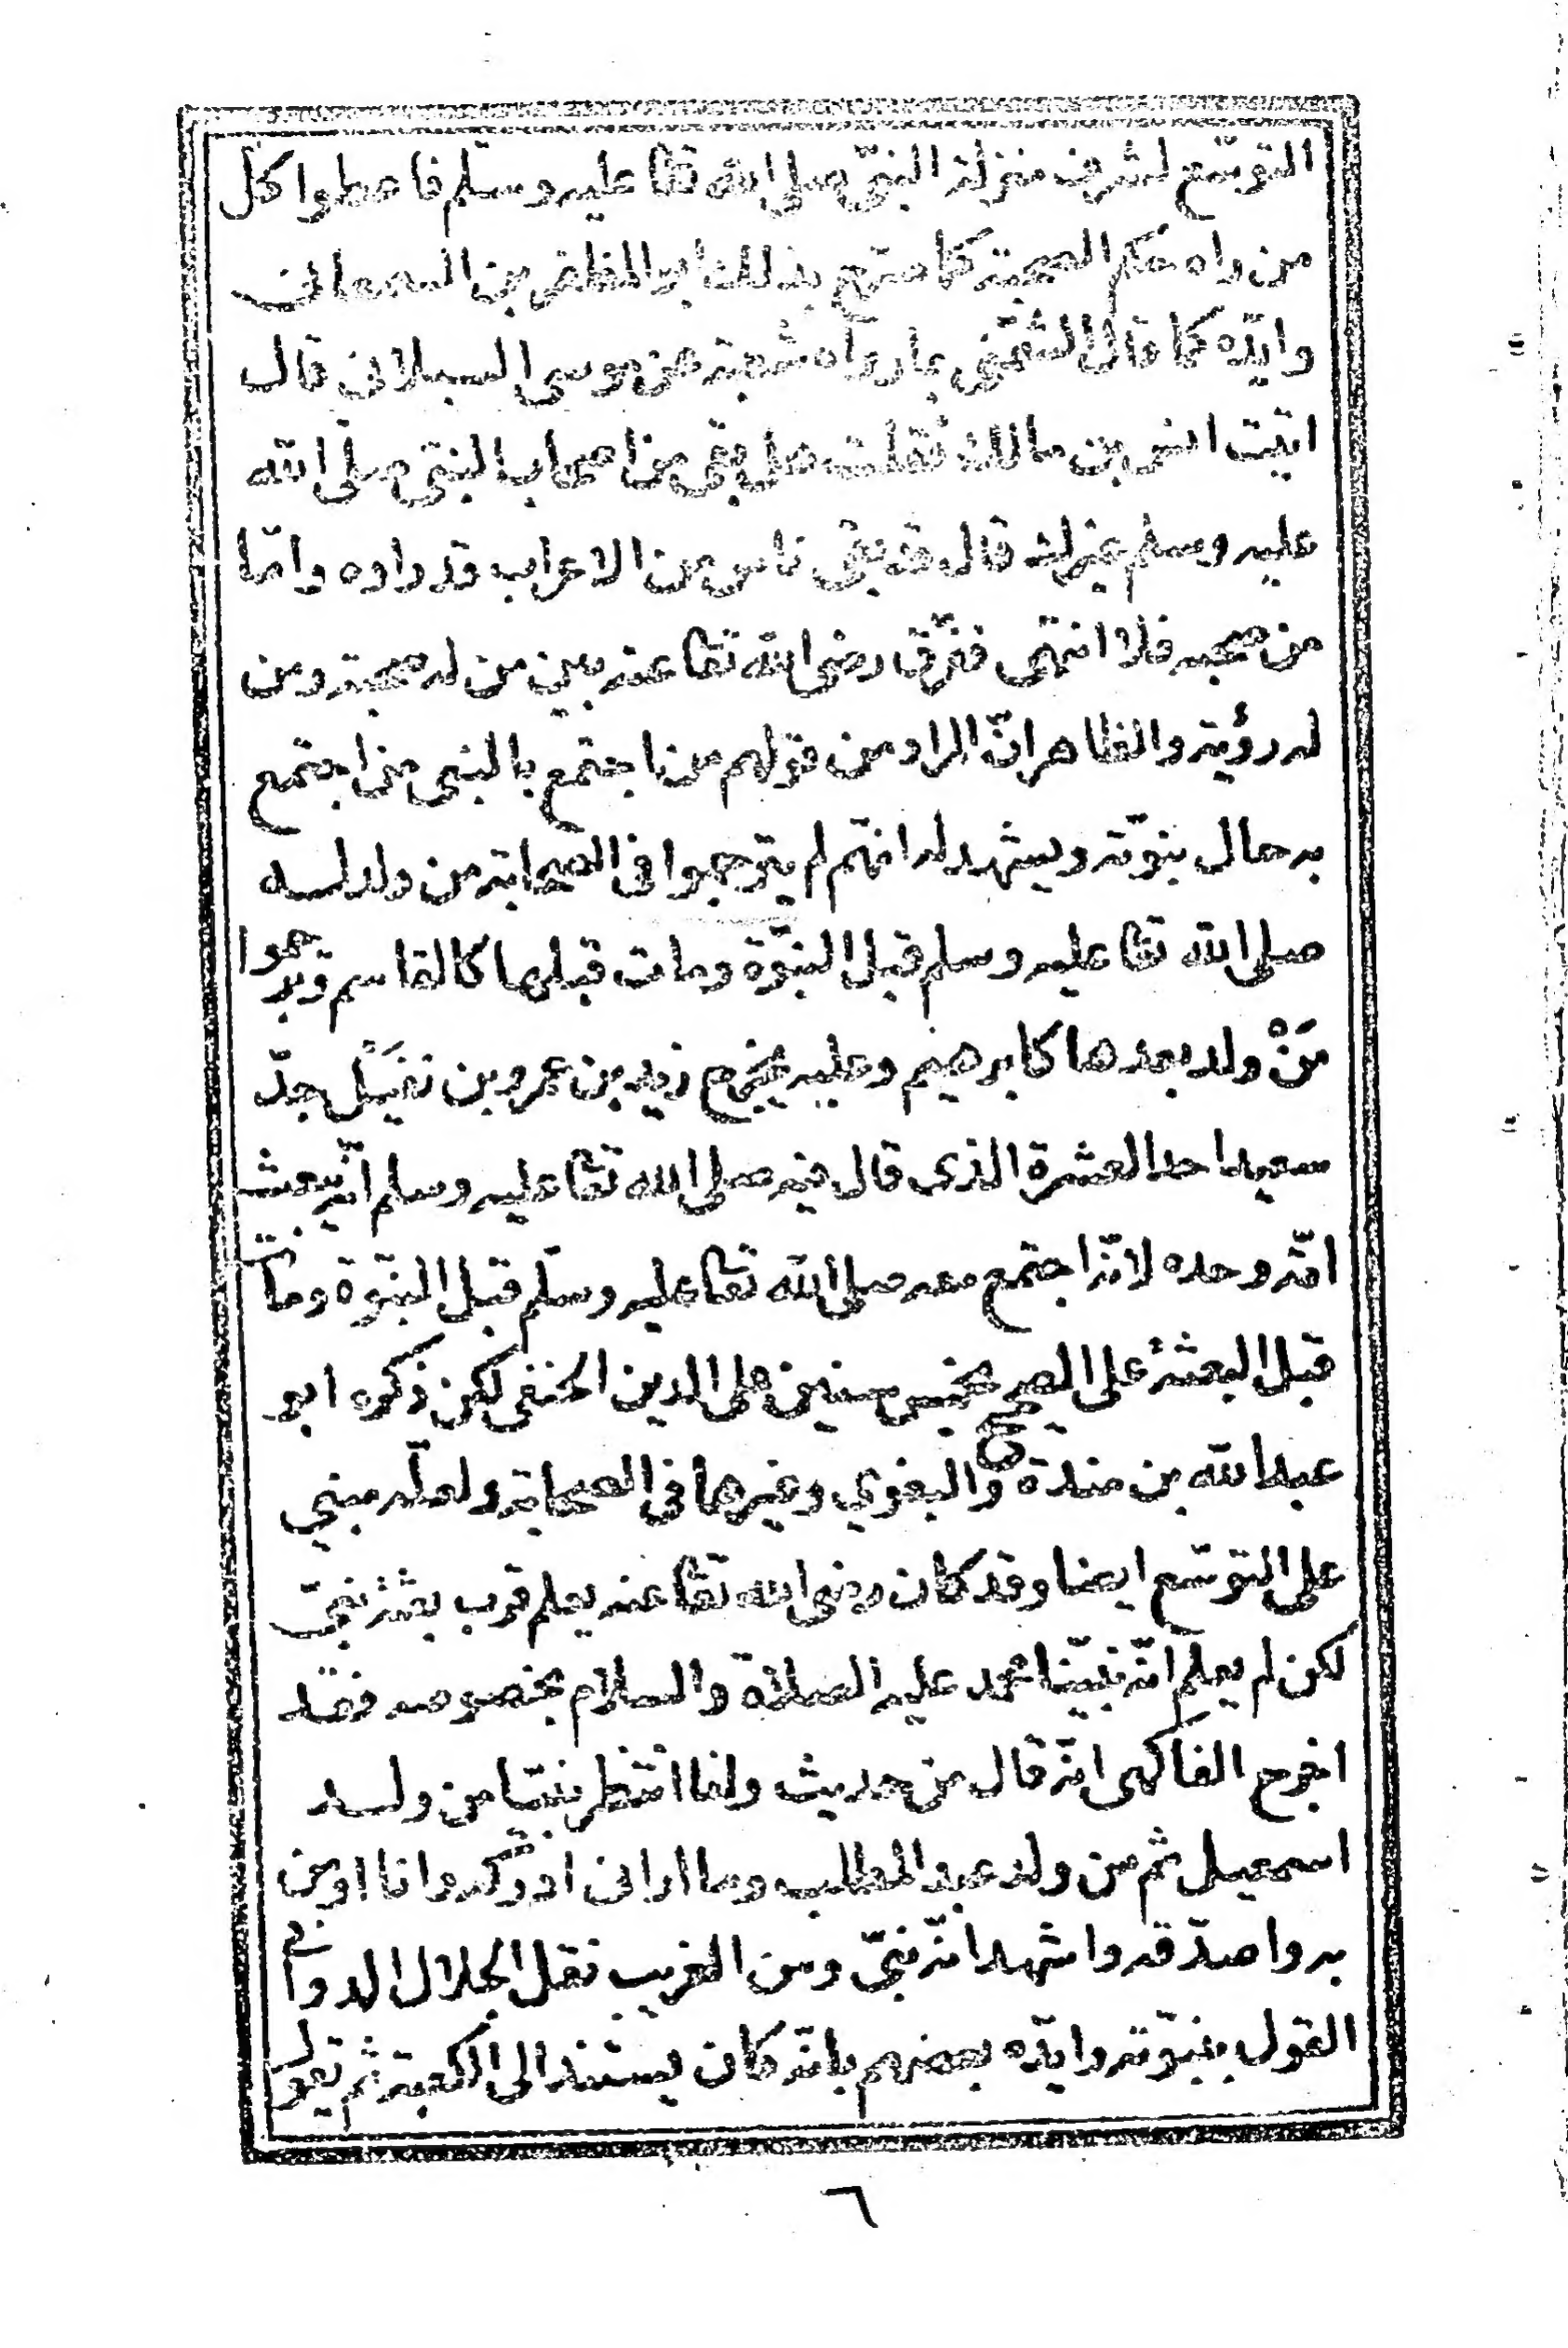 التوسّع لشرف منزلة النبيّ صلى الله تعا عليه وسلّم فاعطوا كلّ
من راه حكم الصحبة كما صرّح بذلك ابو المظفر بن السمعاني
وايّده كما قال الشمنّى بما رواه شعبة عن موسى السبلانى قال
اتيت انس بن مالك فقلت هل بقى من اصحاب النبيّ صلى الله
عليه وسلم غيرك قال قد بقى ناس من الاعراب قد راوه وامّا
من صحبه فلا انتهى ففرّق رضى الله تعا عنه بين من له صحبة ومن
له رؤية والظاهر انّ المراد من قولهم من اجتمع بالنبى من اجتمع
به حال نبوّته ويشهد له انهّم لم يترجموا فى الصحابة من ولد لـه
صلى الله تعا عليه وسلم قبل النبّوة ومات قبلها كالقاسم وترجموا
مَنْ ولد بعدها كابرهيم وعليه يخرج زيد بن عمرو بن نفيَل جدّ
سعيد احد العشرة الذى قال فيه صلى الله تعا عليه وسلم انّه يبعث
امّة وحده لانّه اجتمع معه صلى الله تعا عليه وسلّم قبل النبّوة ومات
قبل البعثة على الصحيح بخمس سنين على الدين الحنفى لكن ذكره ابو
عبد الله بن مندة والبغوي وغيرهما فى الصحابة ولعلّه مبني
على التوسّع ايضا وقد كان رضى الله تعا عنه يعلم قرب بعثة نبيّ
لكن لم يعلم انّه نبيّنا محمد عليه الصلاة والسلام بخصوصه فقد
اخرج الفاكهى انّه قال من حديث وانا انتظر نبيّا من ولـد
اسمعيل ثم من ولد عبد المطلب وما ارانى ادركه وانا اومن
به واصدّقه واشهد انّه نبيّ ومن الغريب نقل الجلال الدوانى
القول بنبوّته وايّده بعضهم بانّه كان يستند الى الكعبة ثم يقول
٦